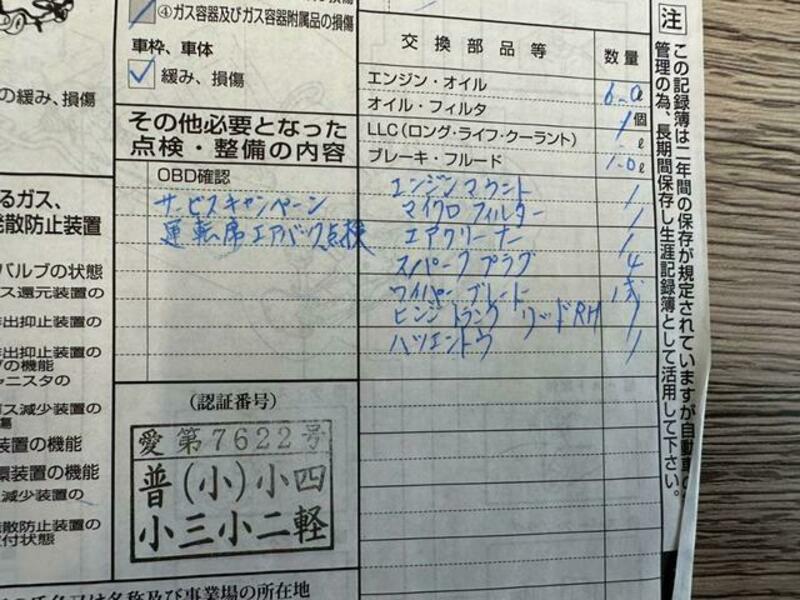 ④ガス容器及びガス容器附属品の損傷
車枠、車体
緩み、損傷
の緩み、損傷
その他必要となった
点検・整備の内容
OBD確認
サービスキャンペーン
運転席エアバック点検
るガス、
発散防止装置
バルブの状態
ス還元装置の
排出抑止装置の
排出抑止装置の
の機能
ャニスタの
ス減少装置の
装置の機能
環装置の機能
減少装置の
発散防止装置の
付状態
(認証番号)
愛第7622号
普(小)小四
小三小二軽
名称及び事業場の所在地
交換部品等 数量
エンジン・オイル 6.0ℓ
オイル・フィルタ 1個
LLC(ロング・ライフ・クーラント) ℓ
ブレーキ・フルード 1.0ℓ
エンジンマウント 1
マイクロフィルター 1
エアクリーナー 1
スパークプラグ 4
ワイパーブレード 1式
ヒンジトランクリッドRH 1
ハツエントウ 1
注
この記録簿は二年間の保存が規定されていますが自動車の
管理の為、長期間保存し生涯記録簿として活用して下さい。